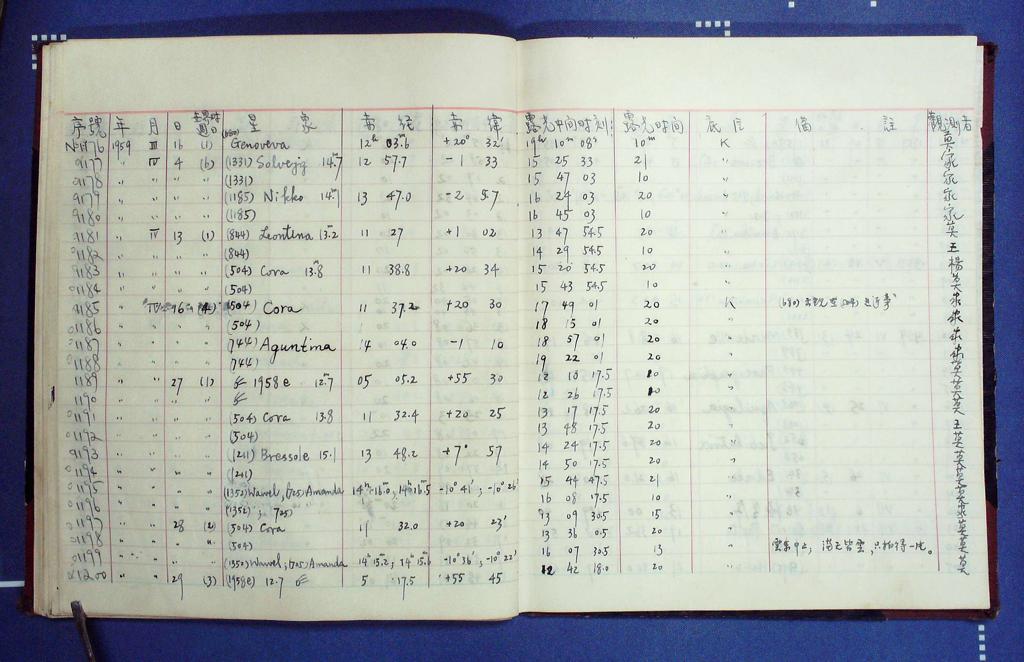 序號 年 月 日 世界時週日 星 象 赤 經 赤 緯 露光中間時刻 露光時間 底片 備 註 觀測者
No1176 1959 III 16 (1) (680) Genoveva 12h 03.m6 +20° 32' 19h 10m 08s 10m K
1177 〃 IV 4 (6) (1331) Solvejg 14.m7 12 57.7 -1 33 15 25 33 21 〃
1178 〃 〃 〃 〃 (1331) 15 47 03 10 〃
1179 〃 〃 〃 〃 (1185) Nikko 14.m1 13 47.0 -2 57 16 24 03 20 〃
1180 〃 〃 〃 〃 (1185) 16 45 03 10 〃
1181 〃 IV 13 (1) (844) Leontina 13.2 11 27 +1 02 13 47 54.5 20 〃
1182 〃 〃 〃 〃 (844) 14 29 54.5 10 〃 王
1183 〃 〃 〃 〃 (504) Cora 13.8 11 38.8 +20 34 15 20 54.5 20 〃 楊
1184 〃 〃 〃 〃 (504) 15 43 54.5 10 〃
1185 〃 IV 16 (4) (504) Cora 11 37.2 +20 30 17 49 01 20 K
1186 〃 〃 〃 〃 (504) 18 15 01 20 〃
1187 〃 〃 〃 〃 (744) Aguntina 14 04.0 -1 10 18 57 01 20 〃
1188 〃 〃 〃 〃 (744) 19 22 01 20 〃
1189 〃 〃 27 (1) 1958e 12.7 05 05.2 +55 30 12 10 17.5 10 〃
1190 〃 〃 〃 〃 12 26 17.5 10 〃
1191 〃 〃 〃 〃 (504) Cora 13.8 11 32.4 +20 25 13 17 17.5 20 〃
1192 〃 〃 〃 〃 (504) 13 48 17.5 20 〃 王
1193 〃 〃 〃 〃 (1211) Bressole 15.1 13 48.2 +7° 57 14 24 17.5 20 〃
1194 〃 〃 〃 〃 (1211) 14 50 17.5 20 〃
1195 〃 〃 〃 〃 (1352) Wawel; (725) Amanda 14h 16.m0; 14h 16.m5 -10° 41'; -10° 26' 15 44 47.5 21 〃
1196 〃 〃 〃 〃 (1352); (725) 16 08 17.5 10 〃
1197 〃 〃 28 (2) (504) Cora 11 32.0 +20 23' 13 09 30.5 15 〃
1198 〃 〃 〃 〃 (504) 13 36 0.5 20 〃
1199 〃 〃 〃 〃 (1352) Wawel; (725) Amanda 14h 15.m2; 14h 15.m6 -10° 36'; -10° 22' 16 07 30.5 13 〃 滿天皆雲，只拍得一比。
1200 〃 〃 29 (3) (1958e) 12.7 5 17.5 +55 45 12 42 18.0 20 〃